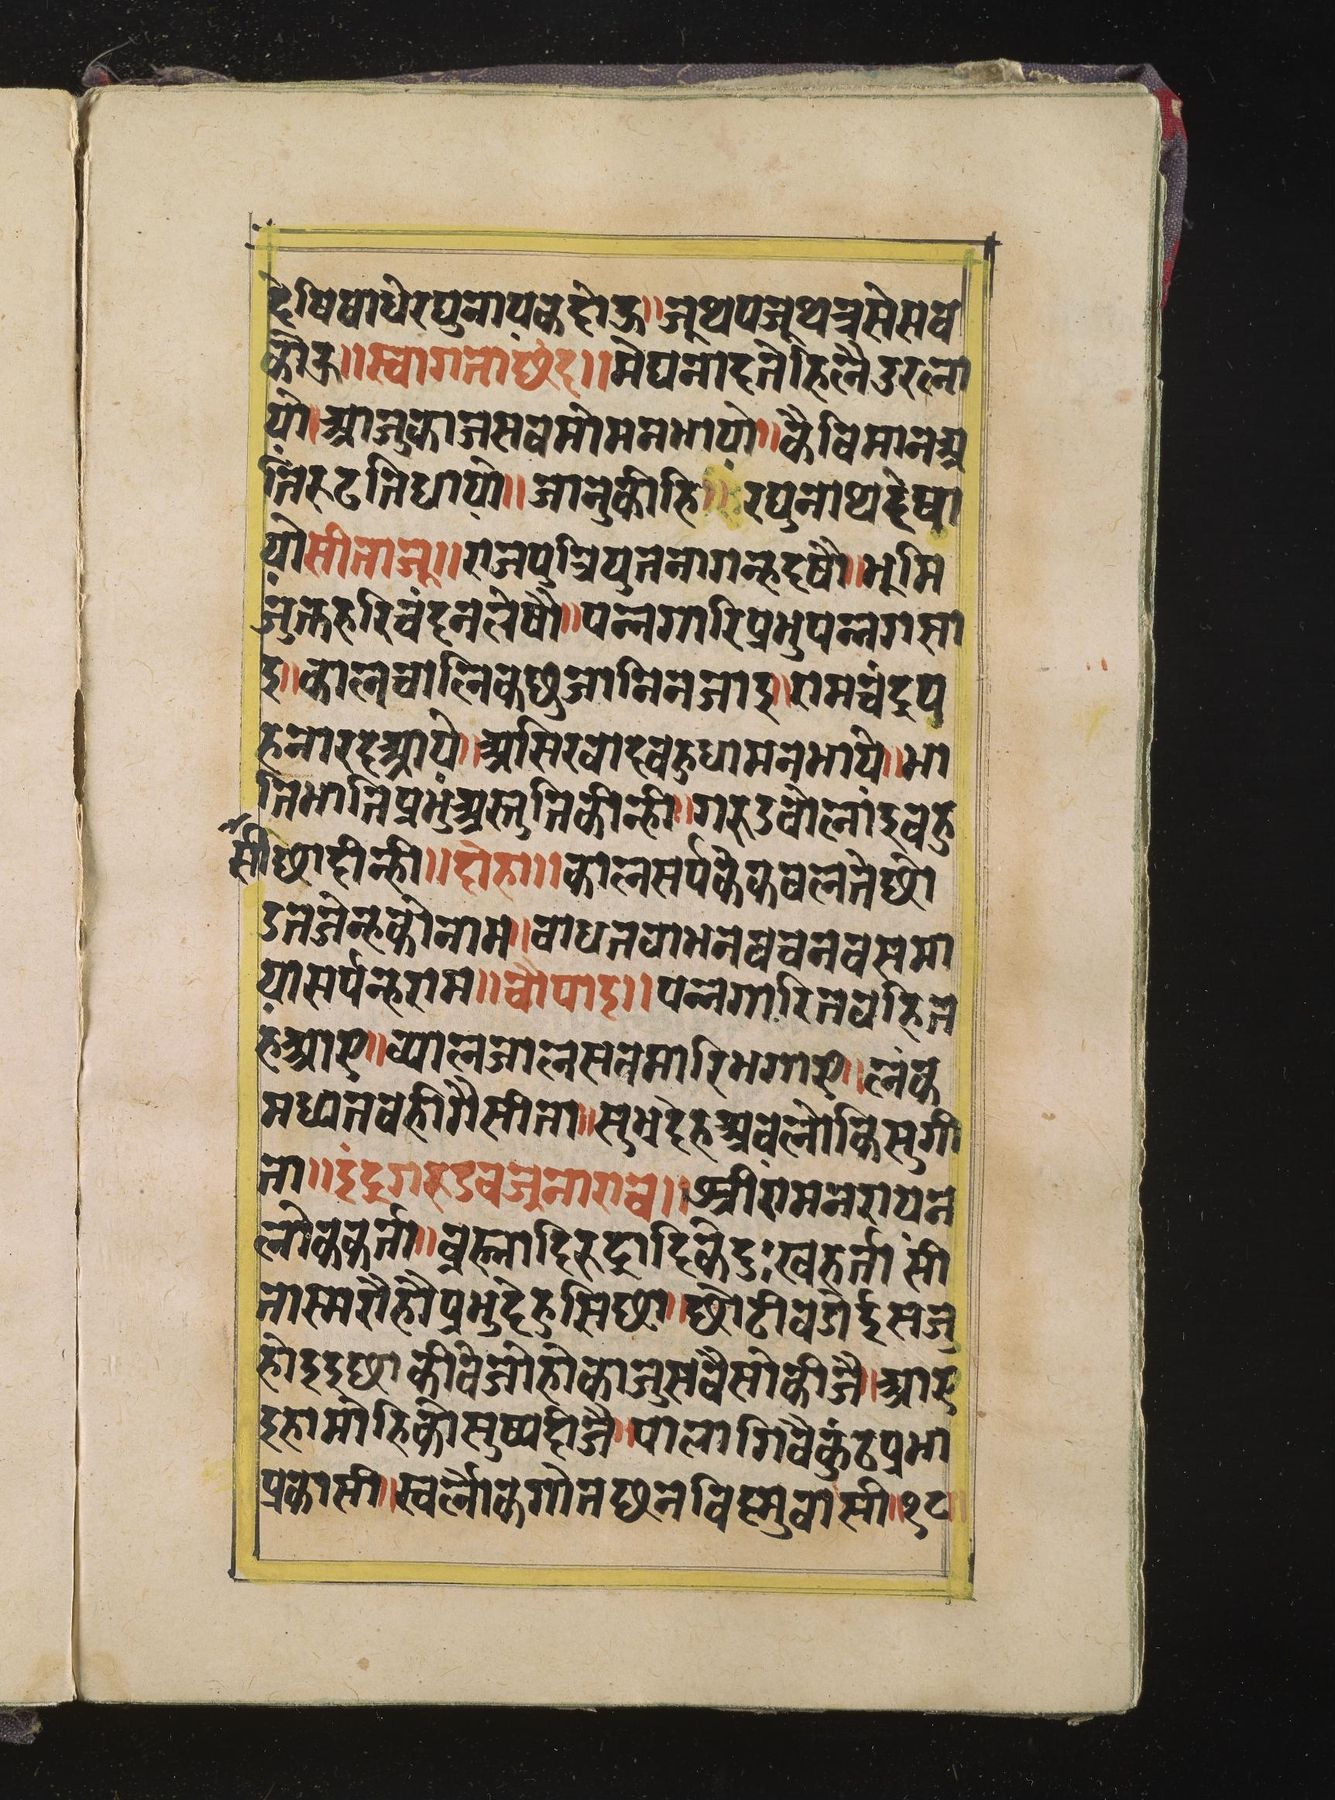 देषिबाधेरघुनायकदोऊ॥जूथपजूथत्रसेसब
कोऊ॥स्वागताछंद॥मेघनादतेहिलैउरला
यो।आजुकाजसबमोमनभायो॥कैबिमानअ
तिरुटतिधायो॥जानुकीहि॥रघुनाथदेषा
यो सीताजू॥राजपुत्रियुतनागन्हदेषौ॥भूमि
जुक्तहरिचंदनलेषौ॥पन्नगारिप्रभुपन्नगसा
इ॥कालचालिकछुजानिनजाइ॥रामचंद्रप
हनारदआये॥असिरवादबहुधामनभाये॥भां
तिभांतिप्रभुअस्तुतिकीन्ही॥गरुडबोलाइबहु
सीछादीन्ही॥दोहा॥कालसर्पकेकबलतेछो
डतजेन्हकोनाम॥बाधतवाभनबचनबसमा
यासर्पन्हराम॥चौपाइ॥पन्नगारितबहित
हंआए॥ब्यालजालसबमारिभगाए॥लंक
मध्यतबहीगैसीता॥सुभदेहअवलोकिसुगी
ता॥इंद्रगरुडबजूनाराच॥श्रीरामनरायन
लोककर्ता॥ब्रह्मादिरुद्रादिकेदुःखहर्तासी
तास्मरौहौप्रभुदेहुसिछा॥छोटीबडोईसजु
होइइछाकीबेजोहोकाजुसबैसोकीजै॥आए
इहामोहिकोसुष्यदीजै॥पालागिबैकुंठप्रभा
प्रकासी॥स्वर्लोकगोतछनबिस्मुबासी॥१८॥